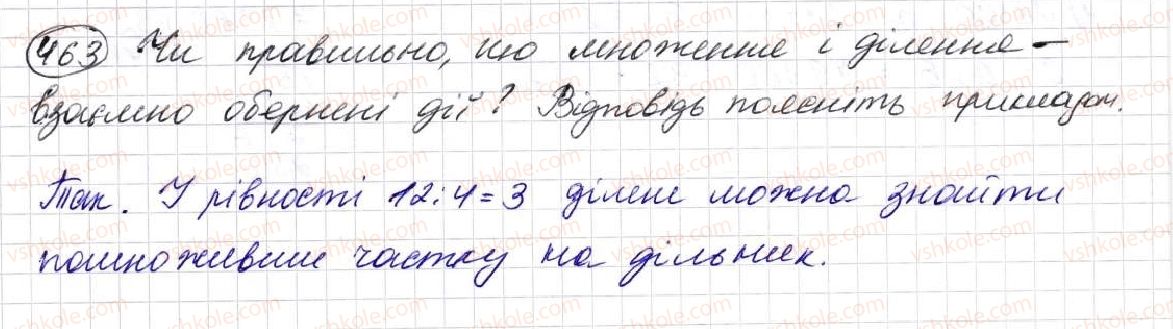 463 Чи правильно, що множення і ділення –
взаємно обернені дії? Відповідь поясніть прикладом.
Так. У рівності 12:4=3 ділене можна знайти
помноживши частку на дільник.